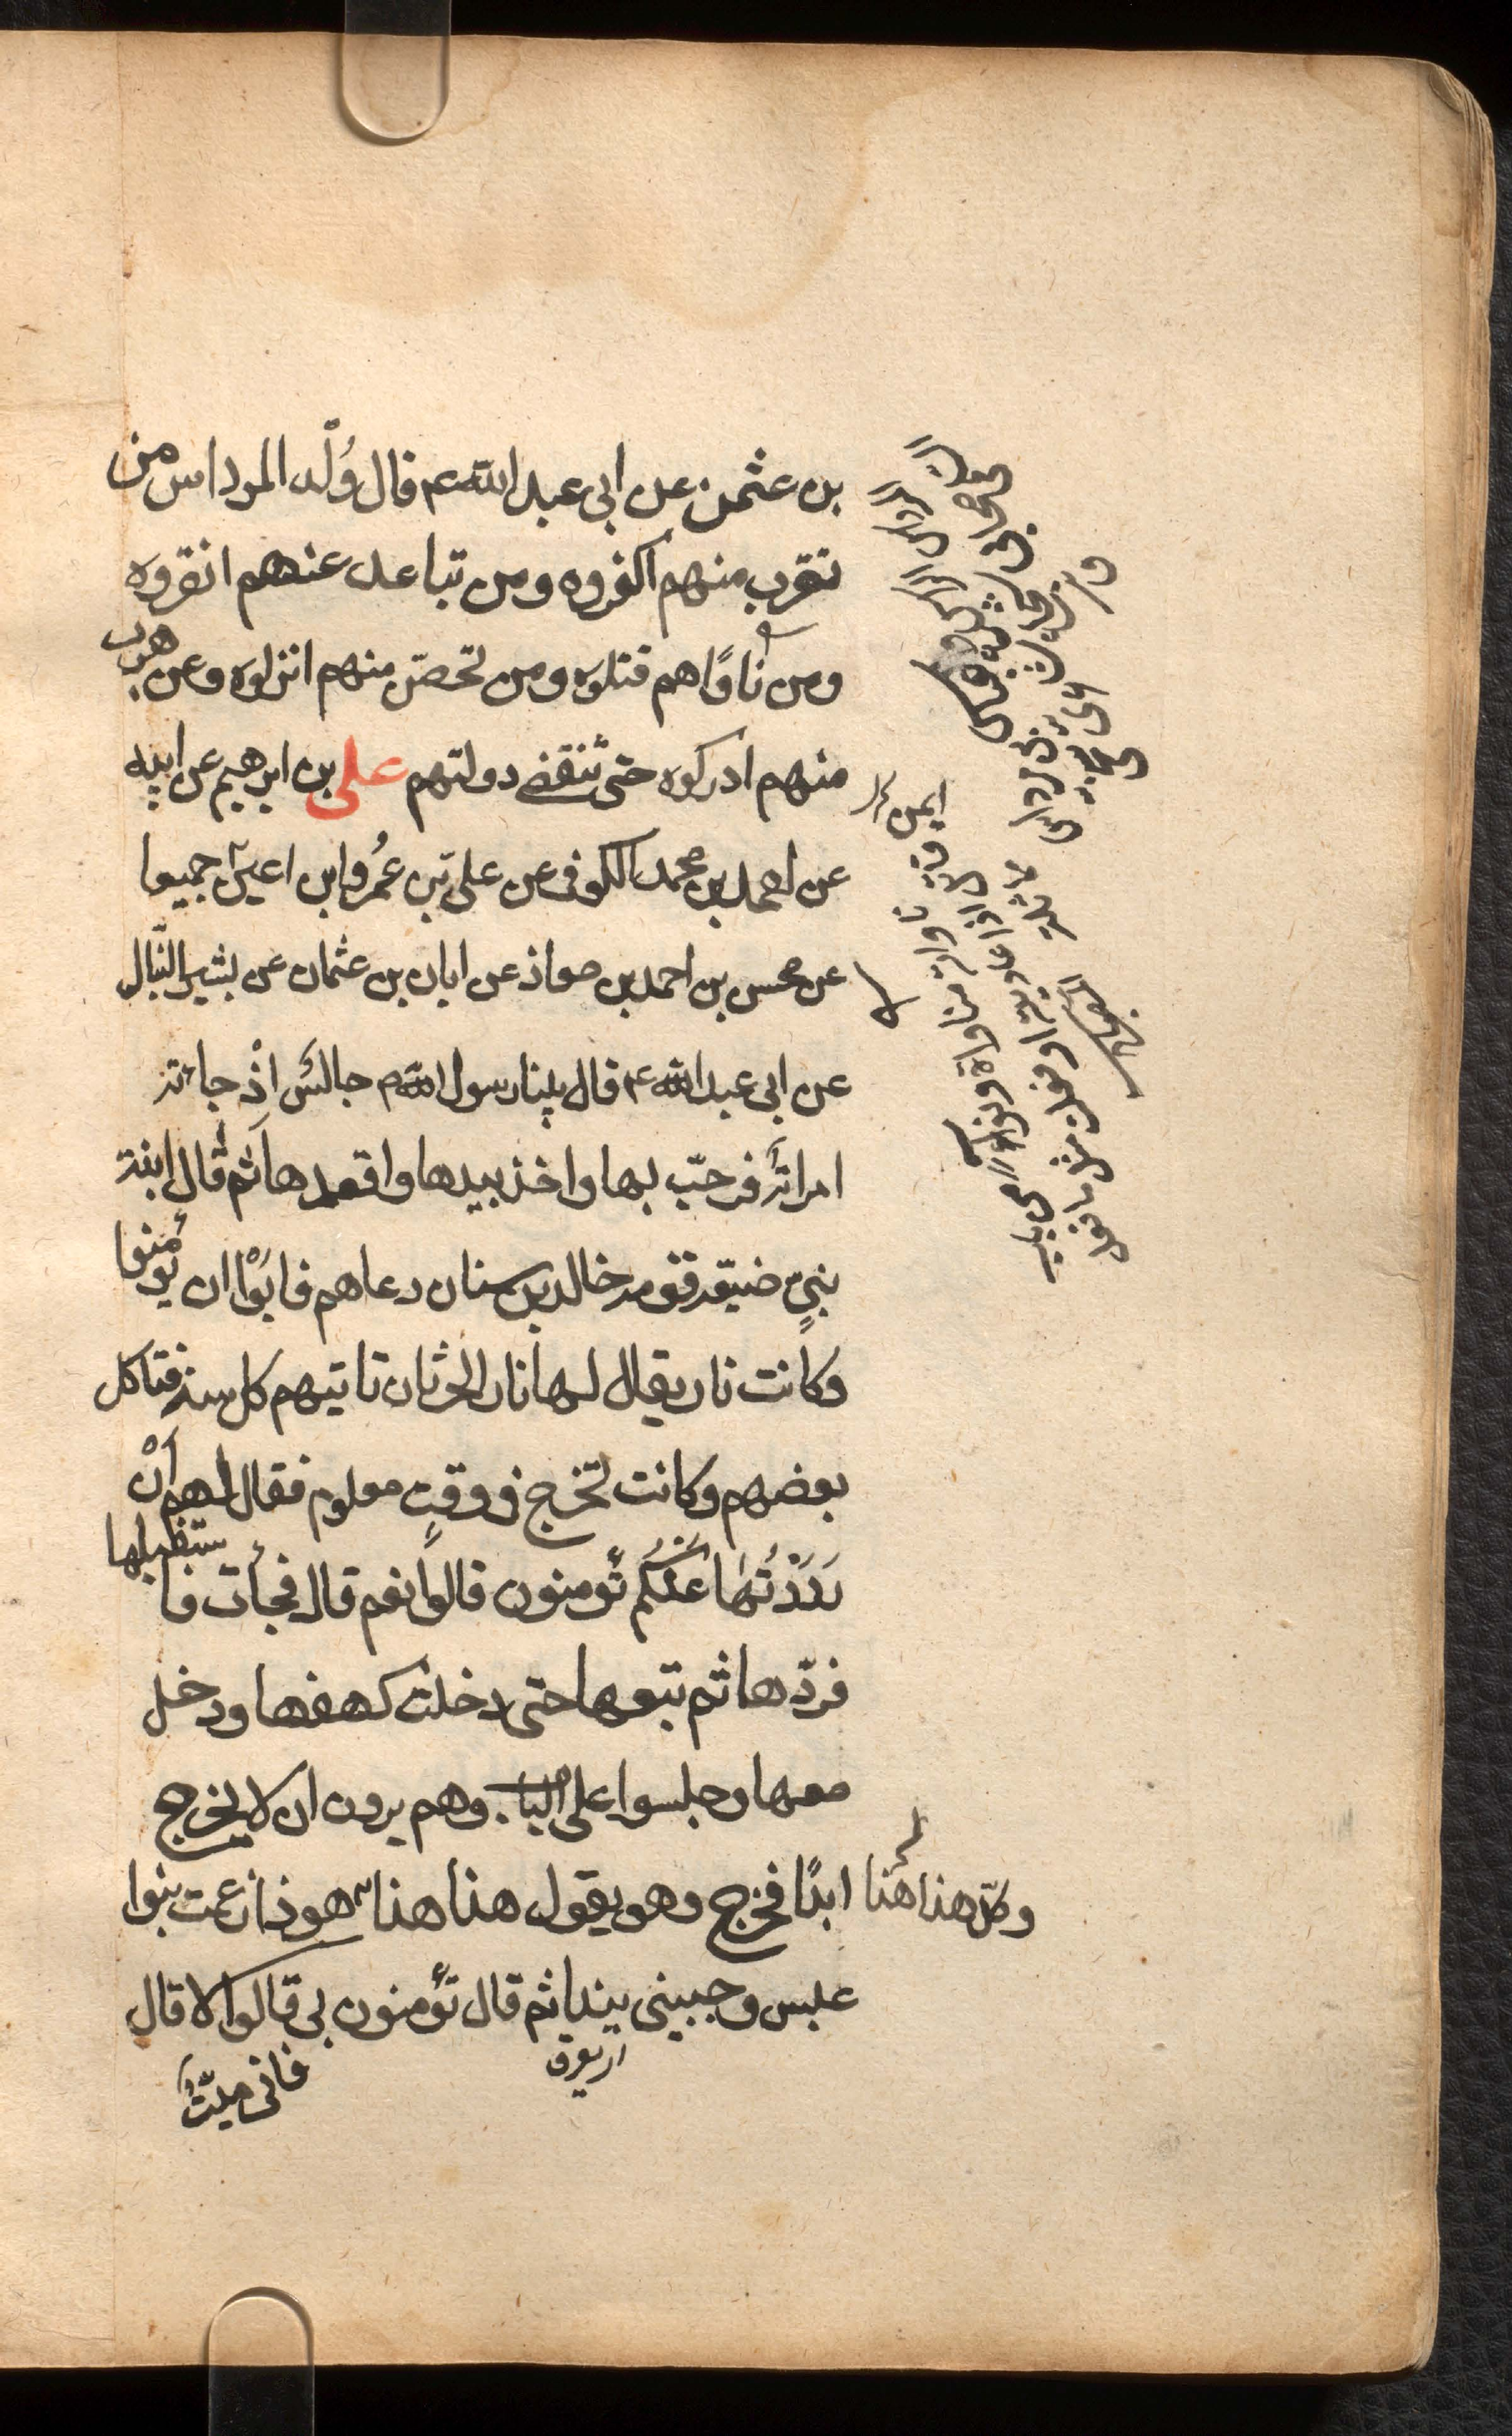 بن عثمن عن ابى عبد الله ع قال وُلْد المرداس من
تقرب منهم اكفروه ومن تباعد عنهم افقروه
ومن ناوَاهم قتلوه ومن تحصّن منهم انزلوه وعن هرب
منهم ادركوه حتى تنقضى دولتهم على بن ابرهيم عن ابيه
عن احمد بن محمد الكوفى عن على بن عُمَرو ابن اعين جميعا
عن محسن بن احمد بن معاذ عن ابان بن عثمان عن بشير النّبال
عن ابى عبد الله ع قال بينا رسول الله ص جالس اذْ جاءته
امراة فرحّب بها واخذ بيدها واقعدها ثم قال ابنة
نبىٍ ضيّعه قومه خالد بن سنان دعاهم فابَوْا ان يؤمنوا
وكانت نار يقال لها نار الحرثان تاتيهم كل سنة فتاكل
بعضهم وكانت تخرج فى وقتٍ معلوم فقال لهم انْ
رَدَدْتُها عنكم تؤمنون قالوا نعم قال فجأت فاستقبلها
فردّها ثم تبعها حتى دخلت كهفها ودخل
معها وجلسوا على الباب وهم يرون ان لا يخرج
ابدًا فخرج وهو يقول هنا هنا هوذا زعمت بنوا
وكلّ هذا هنا
عبس وجبينى يندا ثم قال تؤمنون بى قالوا لا قال
اى يعرق
فانى ميّتٌ